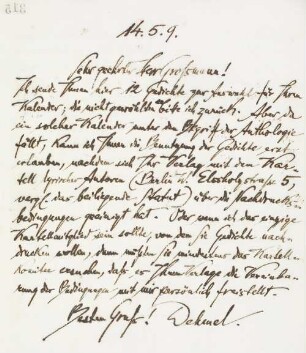 14.5.9.
Sehr geehrter Herr Großmann!
Ich sende Ihnen hier 12 Gedichte zur Auswahl für Ihren
Kalender; die nichtgewählten bitte ich zurück. Aber da
ein solcher Kalender unter den Begriff der Anthologie
fällt, kann ich Ihnen die Benutzung der Gedichte erst
erlauben, nachdem sich Ihr Verlag mit dem Kar-
tell lyrischer Autoren (Berlin W. 5,
vergl. das beiliegende Statut) über die Nachdrucks-
bedingungen geeinigt hat. Oder wenn ich das einzige
Kartellmitglied sein sollte, von dem Sie Gedichte nach-
drucken wollen, dann müßten Sie mindestens das Kartell-
Komitee ersuchen, daß es Ihrem Verlage die Vereinba-
rung der Bedingungen mit mir persönlich freistellt.
Besten Gruß! Dehmel.